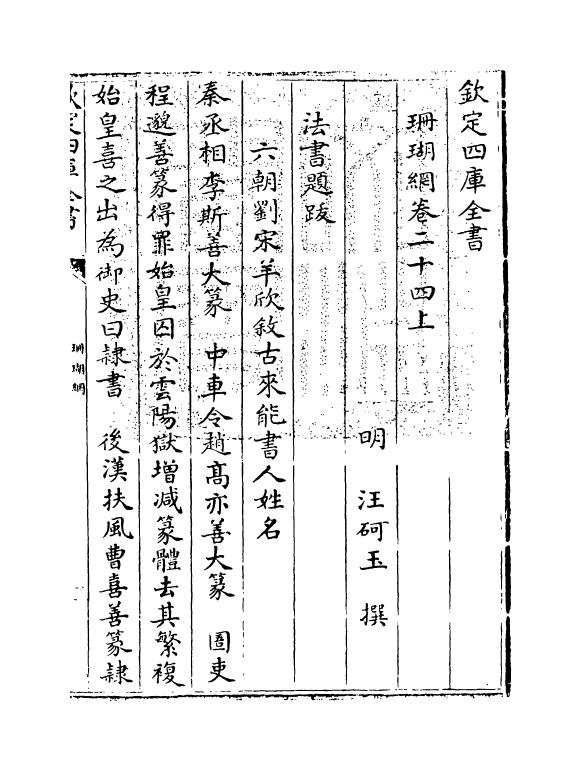 欽定四庫全書
珊瑚網卷二十四上
明　汪砢玉　撰
法書題跋
六朝劉宋羊欣敘古來能書人姓名
秦丞相李斯善大篆　中車令趙髙亦善大篆　圄吏
程邈善篆得罪始皇囚於雲陽獄增減篆體去其繁複
始皇喜之出為御史曰隸書　後漢扶風曹喜善篆隸
欽定四庫全書
珊瑚網